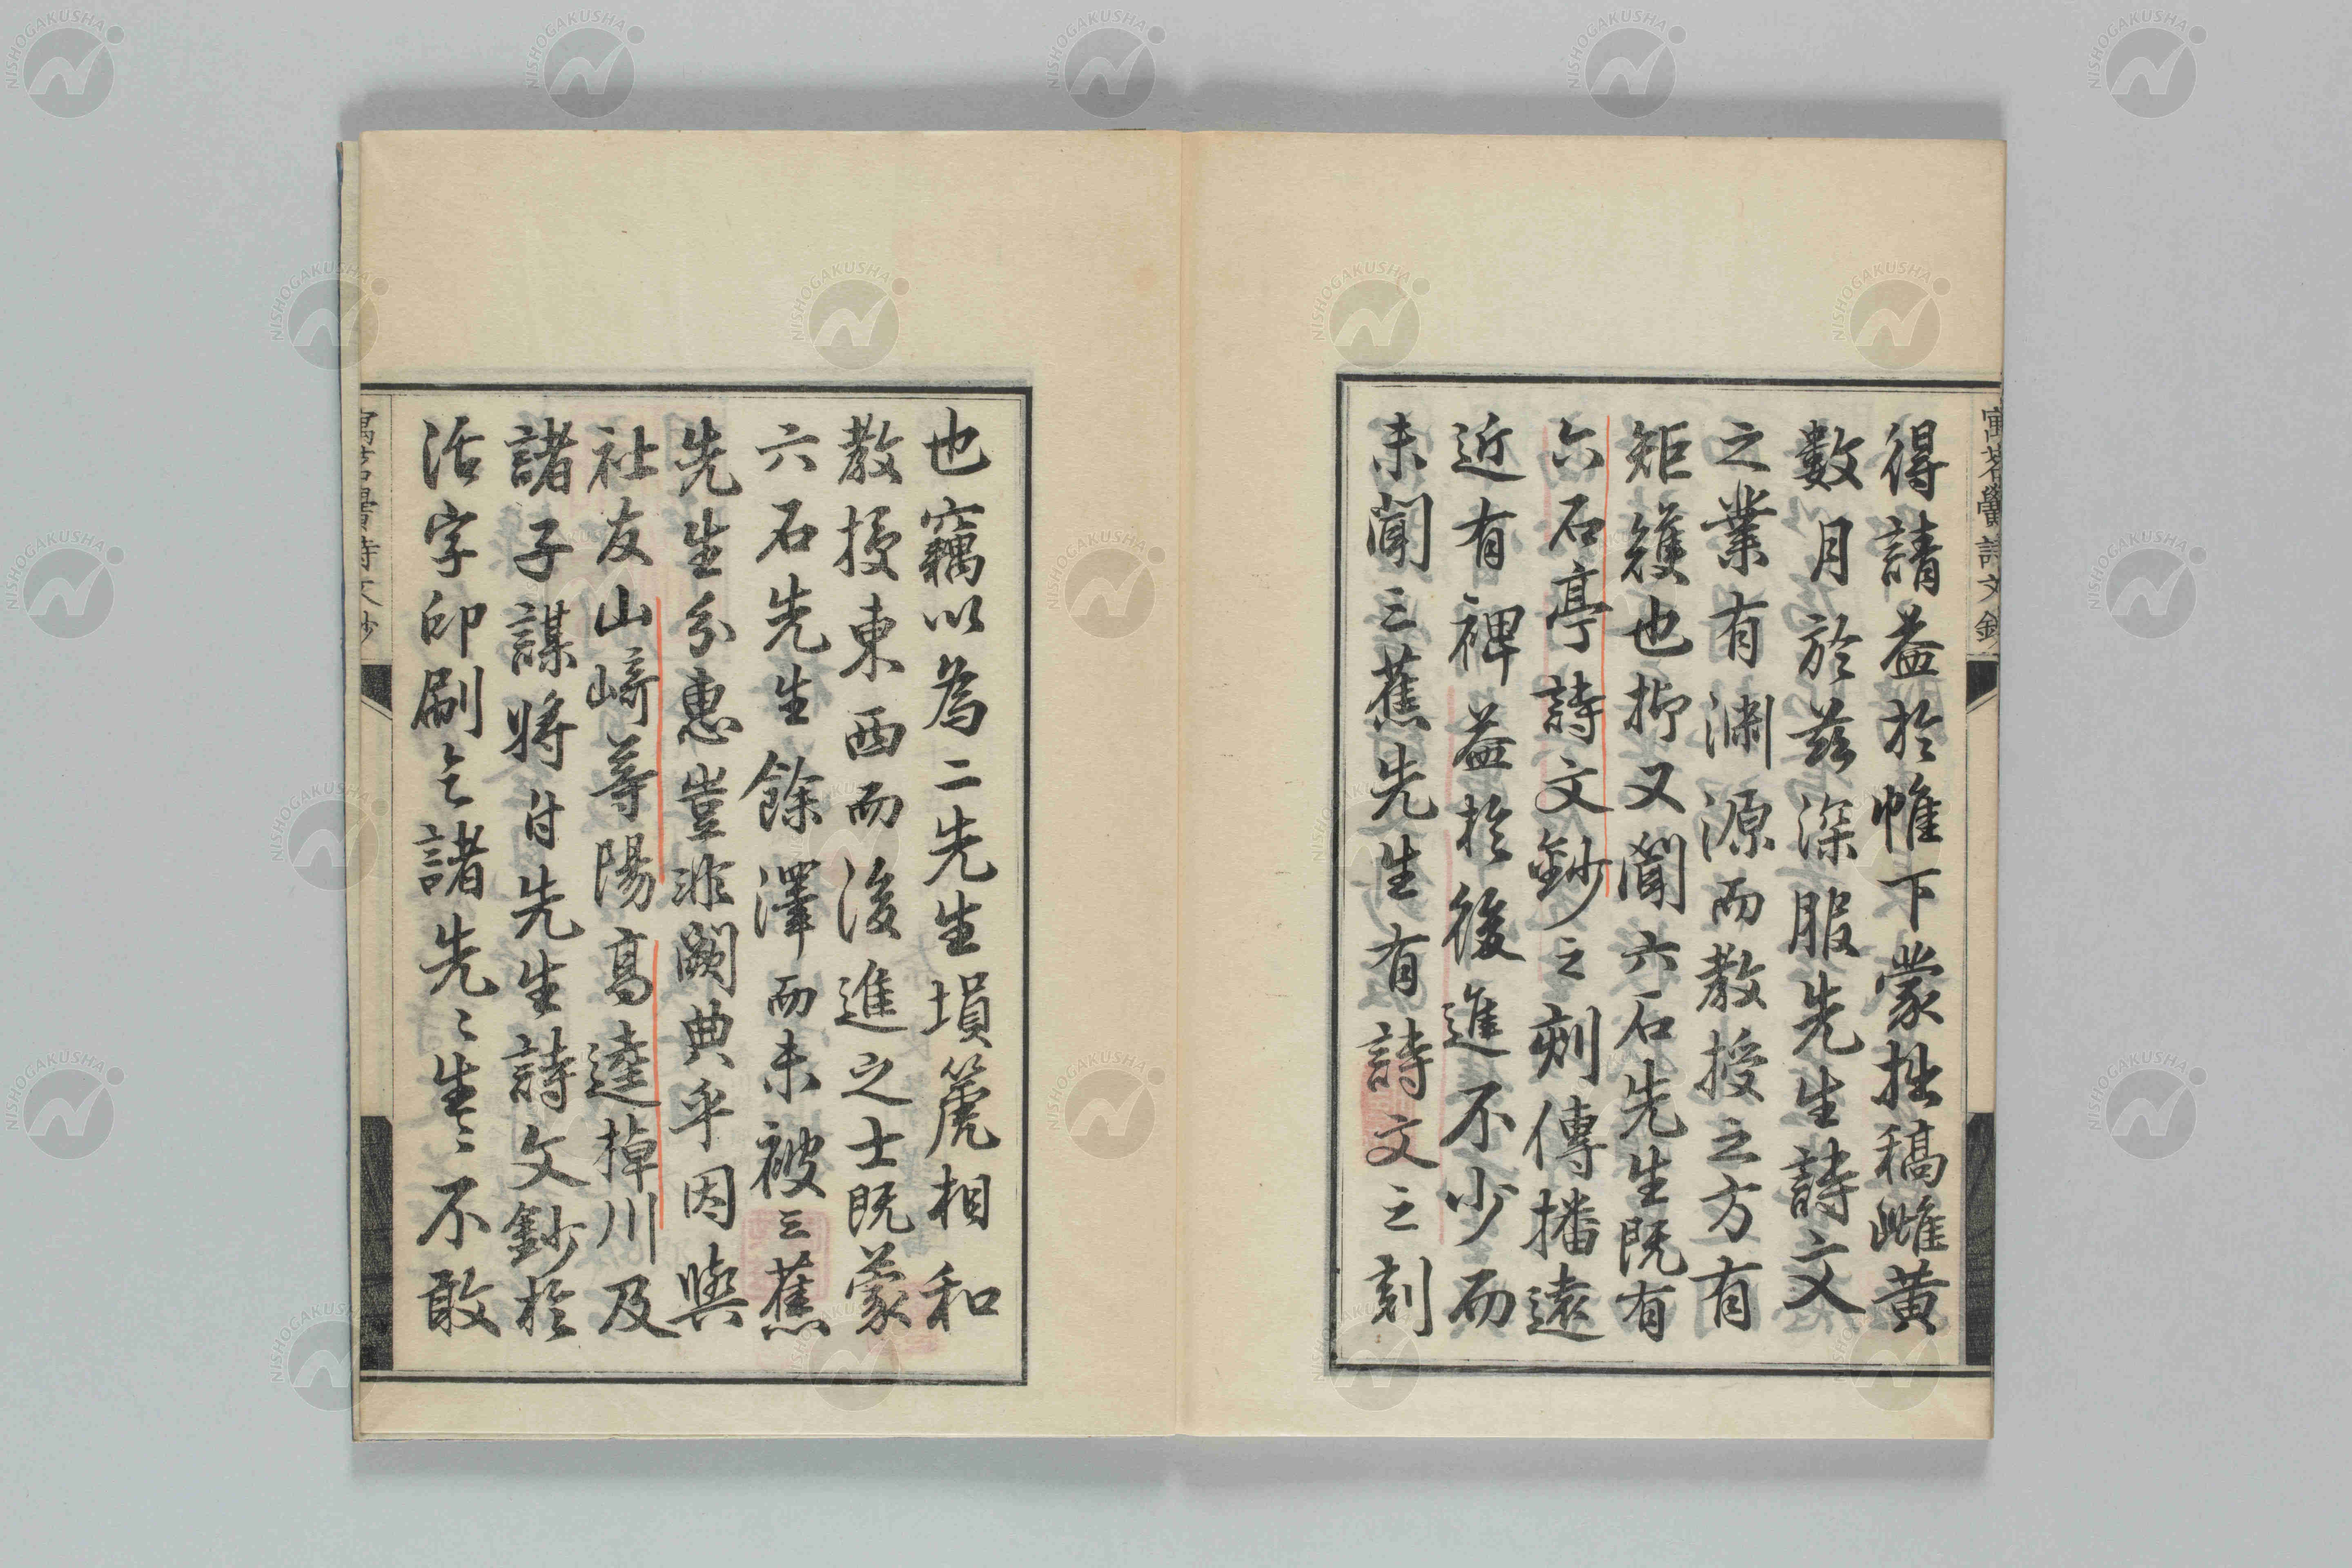 得請益於帷下蒙拙稿雌黄
數月於茲深服先生詩文
之業有渕源而教授之方有
矩矱也抑又聞六石先生既有
六石亭詩文鈔之刻傳播遠
近有裨益於後進不少而
未聞三蕉先生有詩文之刻
也竊以為二先生塤篪相和
教授東西而後進之士既蒙
六石先生餘澤而未被三蕉
先生分惠豈非闕典乎因與
社友山﨑蕁陽高達棹川及
諸子謀將付先生詩文鈔於
活字印刷乞諸先〻生〻不敢
NISHOGAKUSHA